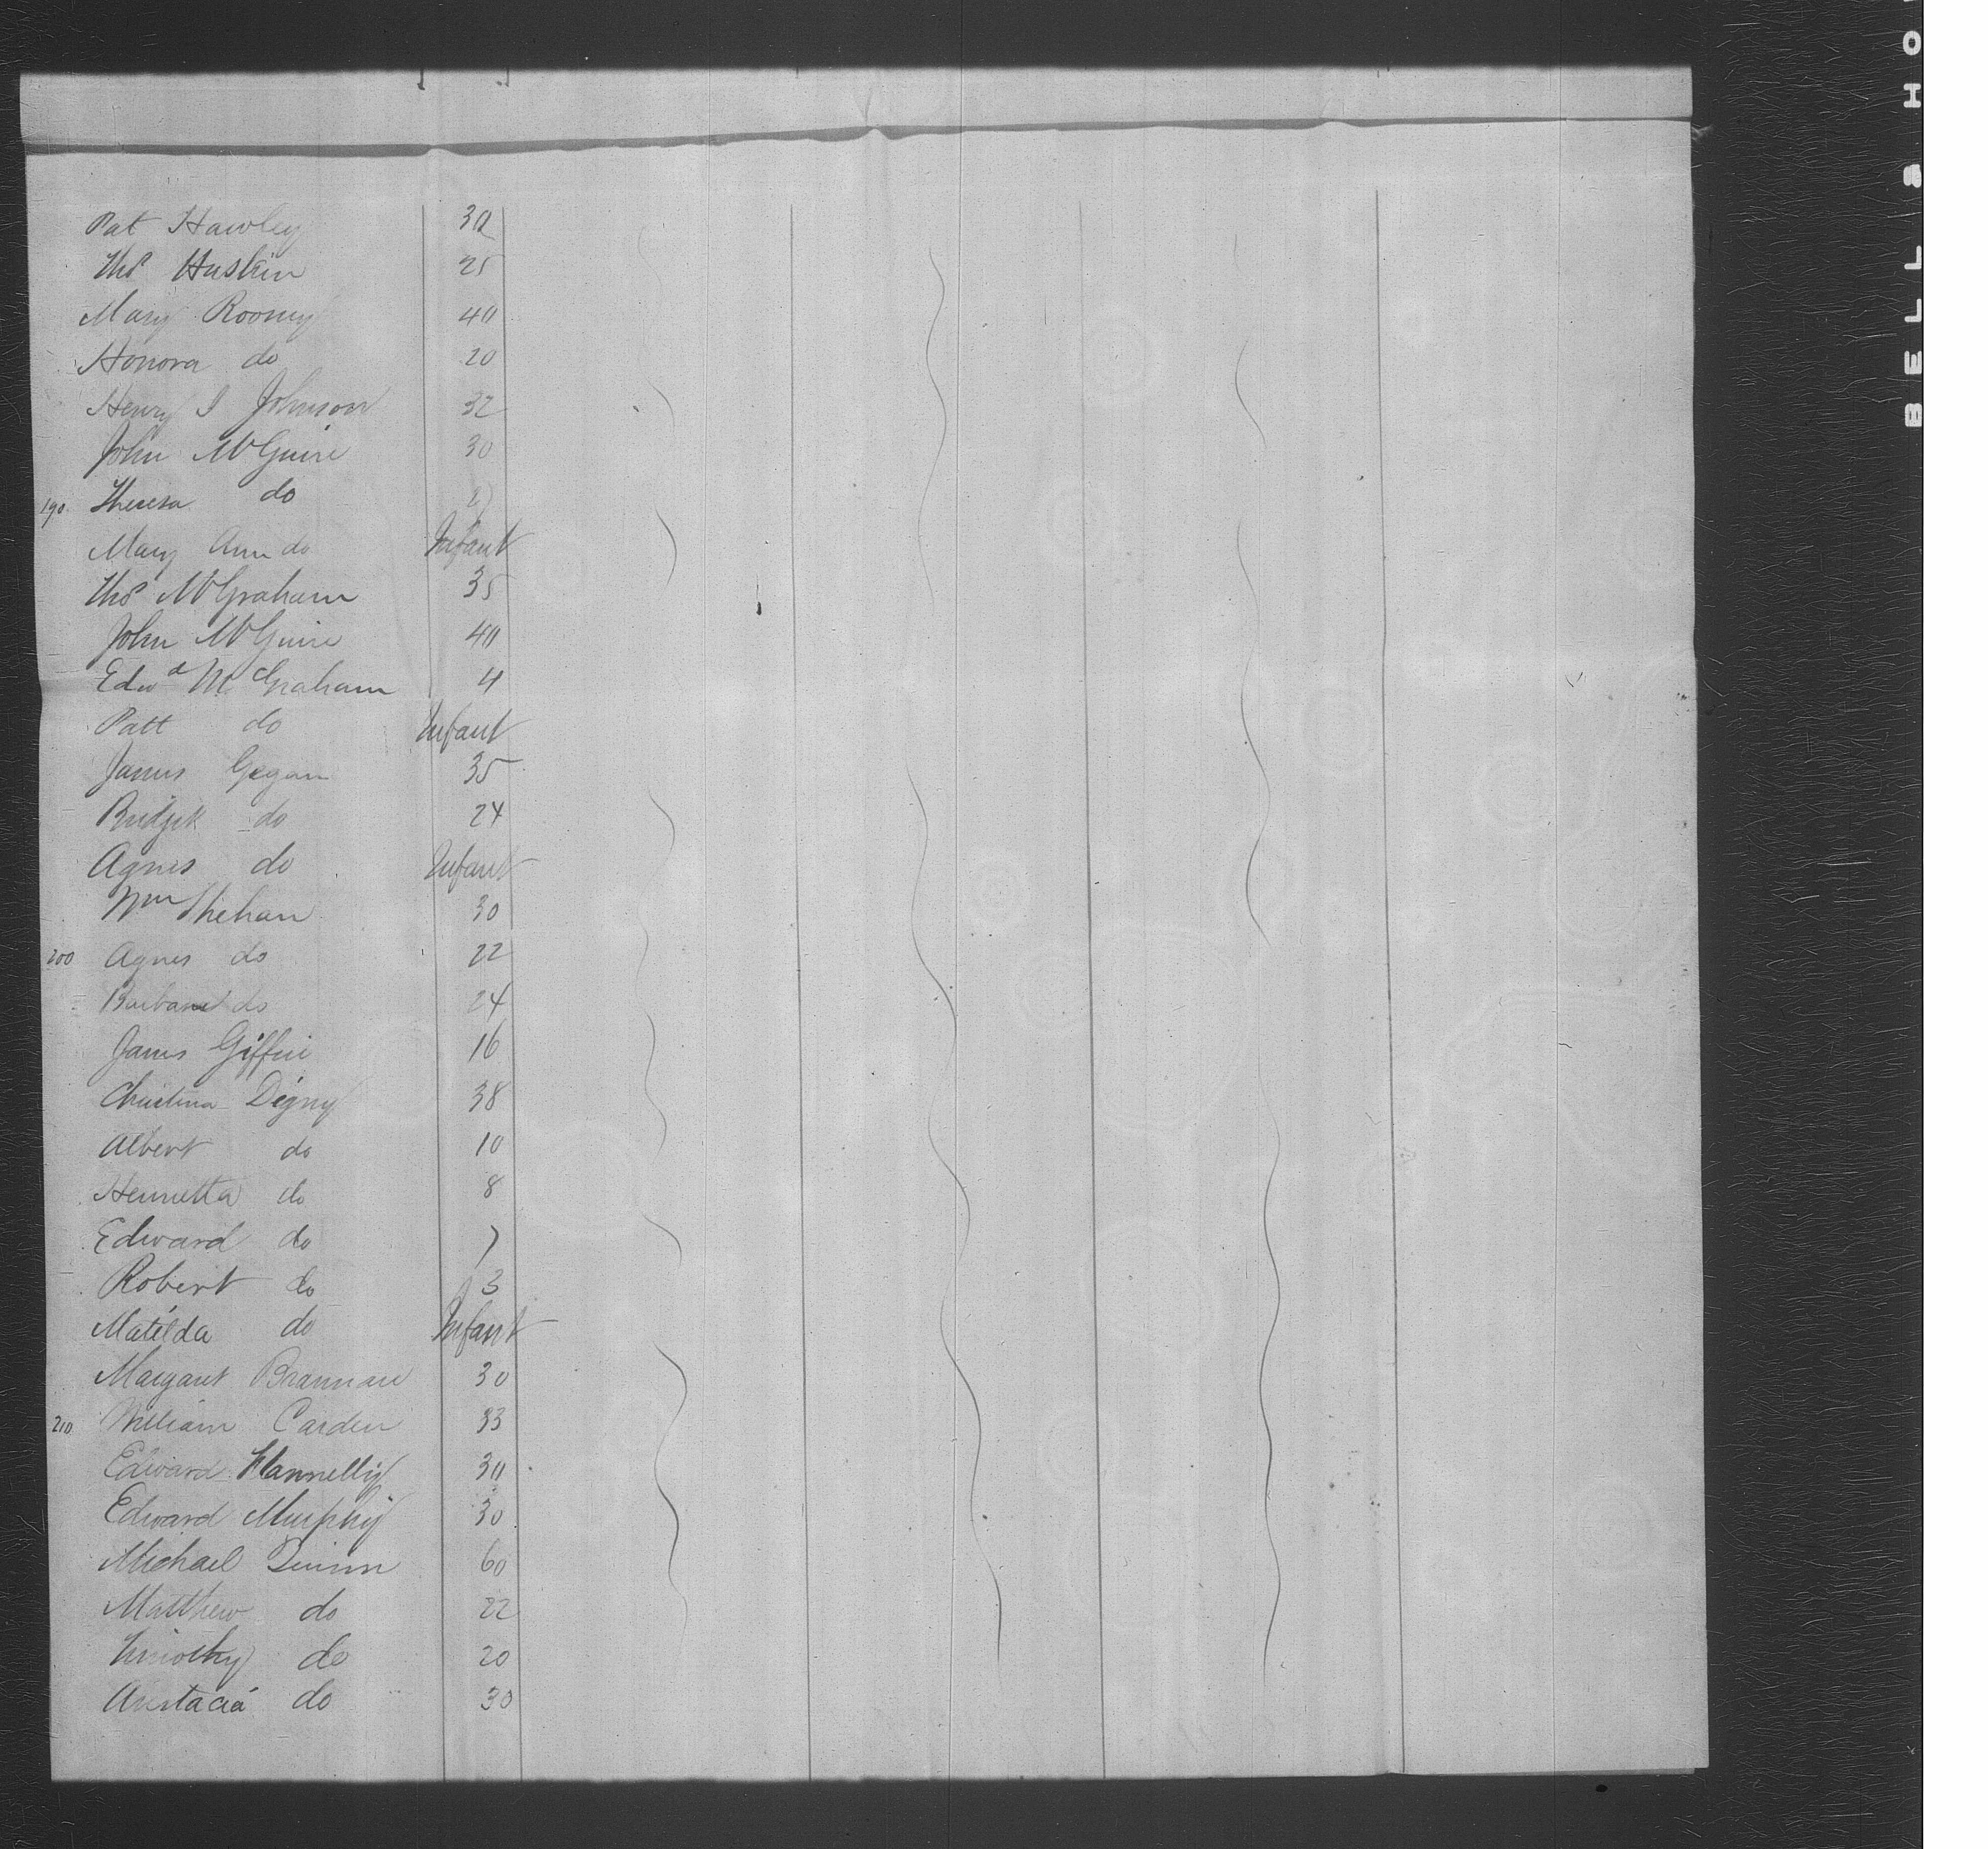 Pat Hawley 30
Thos Huskin 25
Mary Roony 40
Honora do 20
Henry I Johnson 32
John McGuire 30
190 Theresa do
Mary Ann do Infant
Thos McGraham 35
John McGuire 40
Edwd McGraham 4
Patt do Infant
James Gegan 35
Bridjet do 24
Agnes do Infant
Wm Shehan 30
200 Agnes do 22
Barbara do 24
James Giffin 16
Christina Digny 38
Albert do 10
Henrietta do 8
Edward do 7
Robert do 3
Matilda do Infant
Margaret Brannan 30
210 William Carden 33
Edward Flannelly 30
Edward Murphy 30
Michael Quinn 60
Matthew do 22
Timothy do 20
Anstacia do 30
BELL & HO